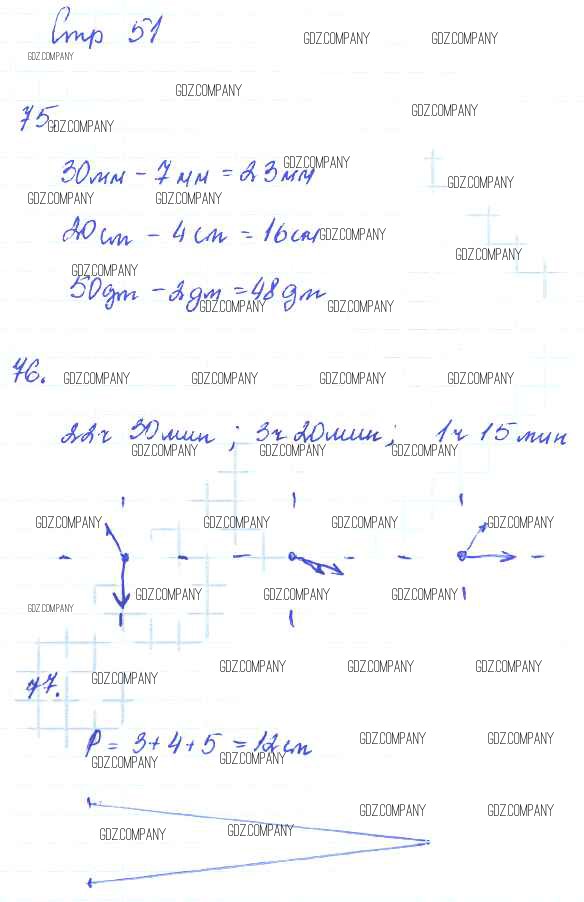 Стр 51
GDZ.COMPANY GDZ.COMPANY
GDZ.COMPANY
GDZ.COMPANY
75 GDZ.COMPANY
GDZ.COMPANY
30мм - 7мм = 23мм
GDZ.COMPANY GDZ.COMPANY
GDZ.COMPANY GDZ.COMPANY
20cm - 4cm = 16cm
GDZ.COMPANY GDZ.COMPANY
GDZ.COMPANY
50дм - 2дм = 48дм
GDZ.COMPANY GDZ.COMPANY
76.
GDZ.COMPANY GDZ.COMPANY GDZ.COMPANY GDZ.COMPANY
22ч 30мин ; 3ч 20мин ; 1ч 15мин
GDZ.COMPANY GDZ.COMPANY GDZ.COMPANY
GDZ.COMPANY GDZ.COMPANY GDZ.COMPANY GDZ.COMPANY
GDZ.COMPANY GDZ.COMPANY GDZ.COMPANY
GDZ.COMPANY
77.
GDZ.COMPANY GDZ.COMPANY GDZ.COMPANY GDZ.COMPANY
P = 3+4+5 = 12cm
GDZ.COMPANY GDZ.COMPANY
GDZ.COMPANY GDZ.COMPANY
GDZ.COMPANY GDZ.COMPANY
GDZ.COMPANY GDZ.COMPANY